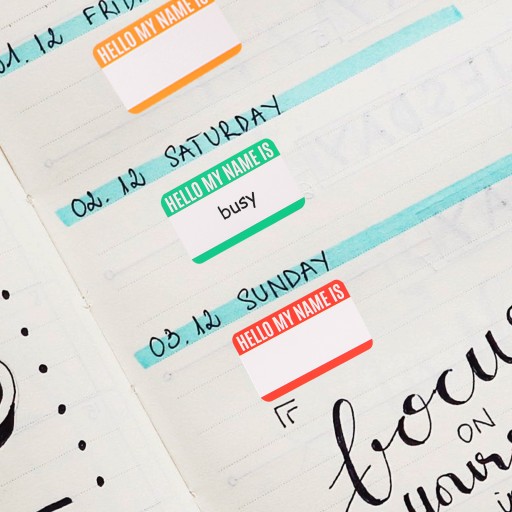 01. 12 FRIDAY
HELLO MY NAME IS
02. 12 SATURDAY
HELLO MY NAME IS
busy
03. 12 SUNDAY
HELLO MY NAME IS
focus
ON